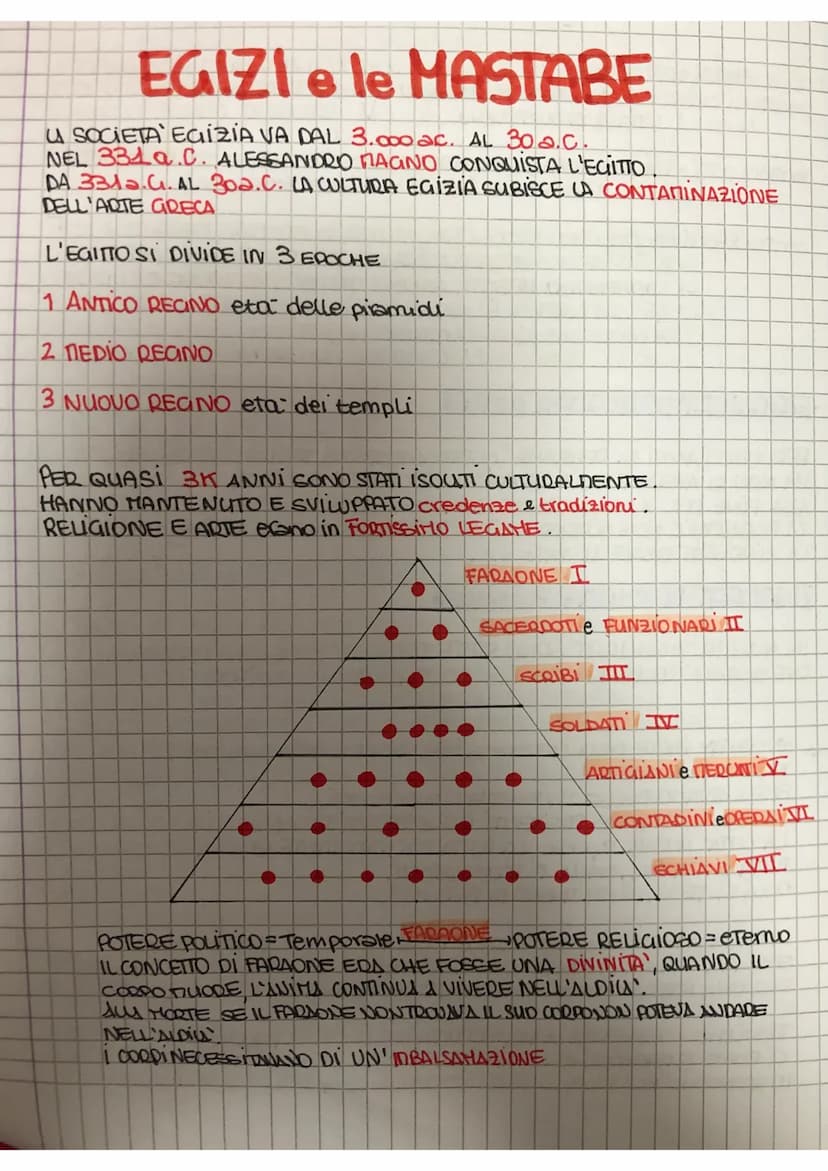 EGIZI e le MASTABE
LA SOCIETA' EGIZIA VA DAL 3.000 a.C. AL 30 a.C.
NEL 331 a.C. ALESSANDRO MAGNO CONQUISTA L'EGITTO.
DA 331 a.C. AL 30 a.C. LA CULTURA EGIZIA SUBISCE LA CONTAMINAZIONE
DELL'ARTE GRECA
L'EGITTO SI DIVIDE IN 3 EPOCHE
1 ANTICO REGNO età delle piramidi
2 MEDIO REGNO
3 NUOVO REGNO età dei templi
PER QUASI 3K ANNI SONO STATI ISOLATI CULTURALMENTE.
HANNO MANTENUTO E SVILUPPATO credenze e tradizioni.
RELIGIONE E ARTE erano in FORTISSIMO LEGAME.
FARAONE I
SACERDOTI e FUNZIONARI II
SCRIBI III
SOLDATI IV
ARTIGIANI e MERCANTI V
CONTADINI e OPERAI VI
SCHIAVI VII
POTERE POLITICO = Temporale FARAONE → POTERE RELIGIOSO = eterno
IL CONCETTO DI FARAONE ERA CHE FOSSE UNA DIVINITA', QUANDO IL
CORPO MUORE, L'ANIMA CONTINUA A VIVERE NELL'ALDILA'.
ALLA MORTE SE IL FARAONE NON TROVAVA IL SUO CORPO NON POTEVA ANDARE
NELL'ALDILA'
I CORPI NECESSITAVANO DI UN' IMBALSAMAZIONE